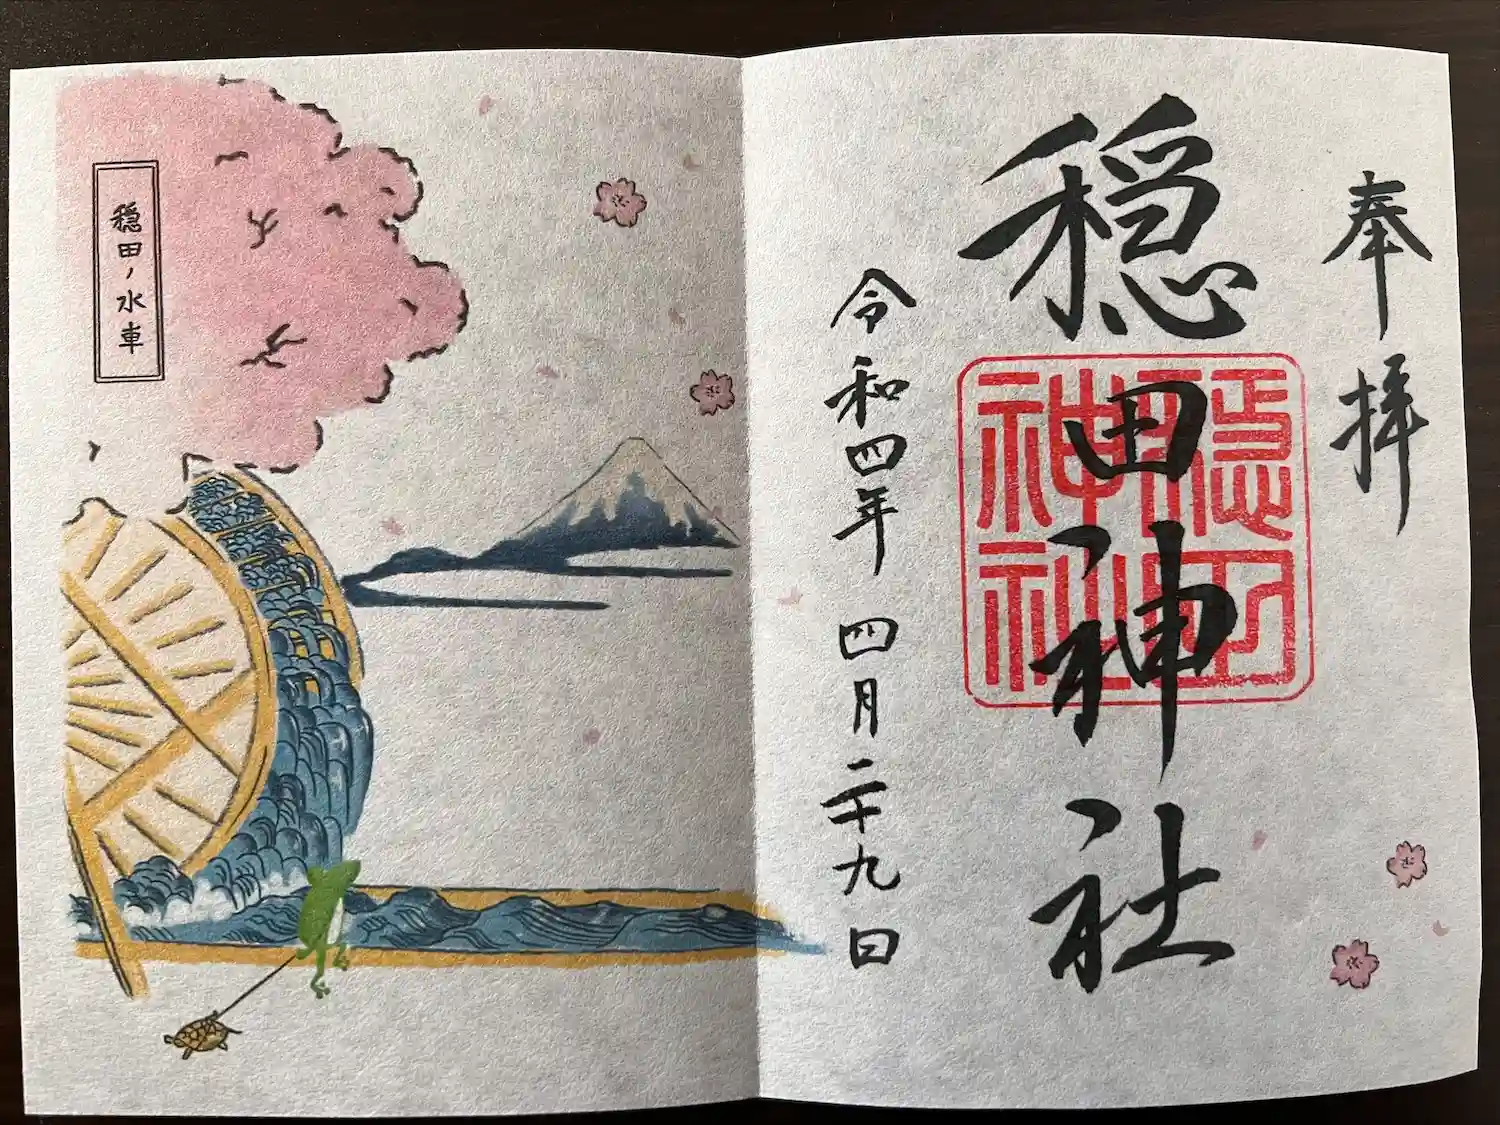 奉拝
穏田神社
穏田神社
令和四年 四月二十九日
穏田ノ水車